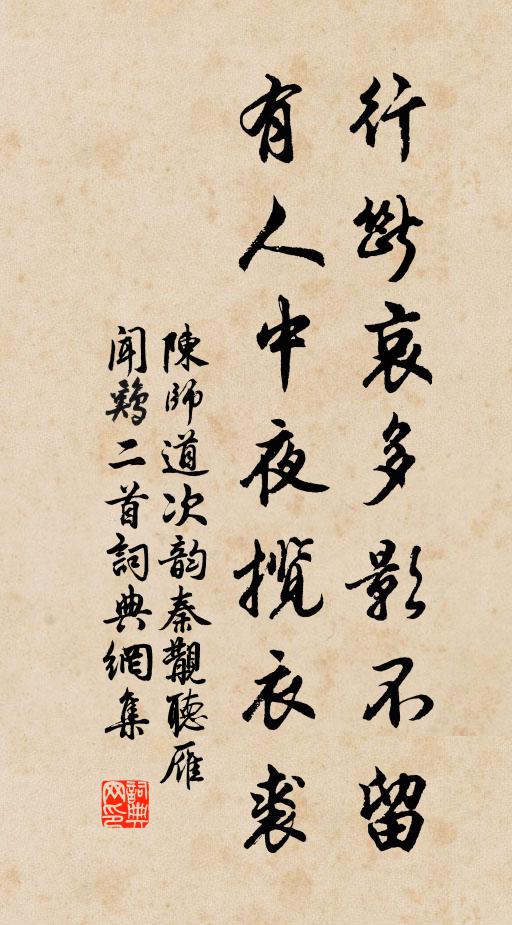 行斷哀多影不留
有人中夜攬衣裘
陳師道次韵秦觀聽雁
聞鷄二首詞典網集
詞典
网印